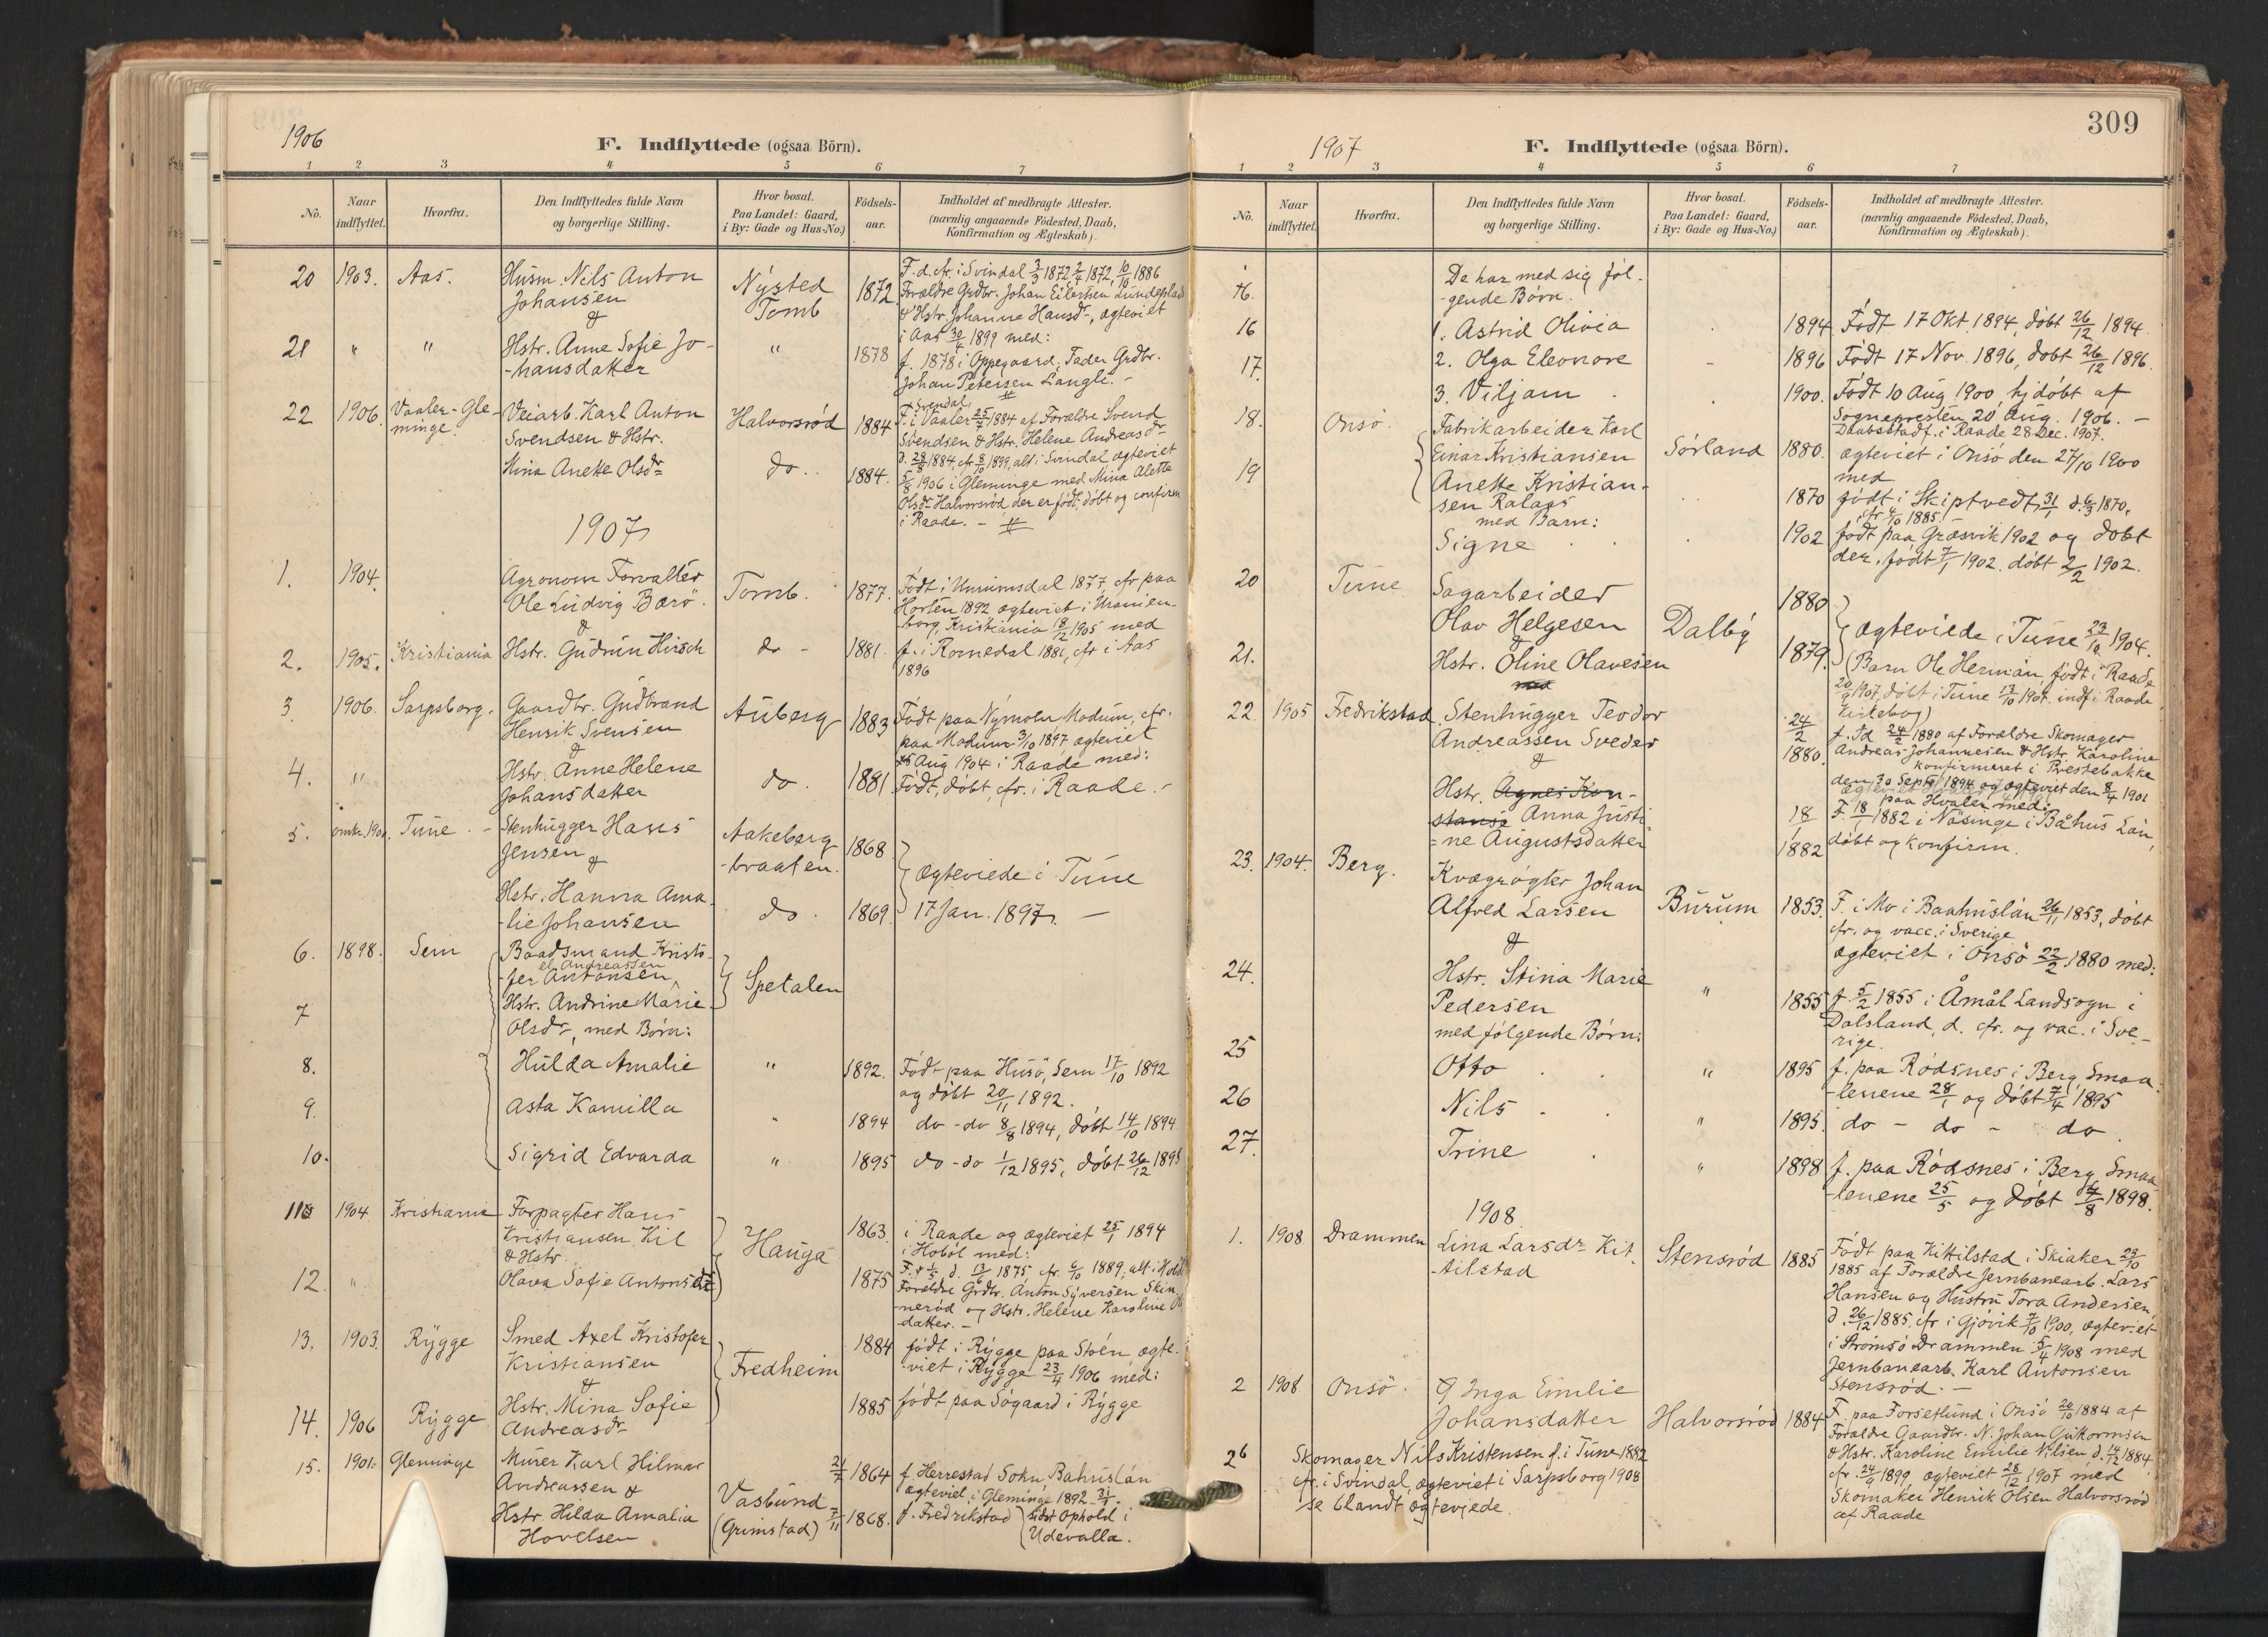 1906
F. Indflyttede (ogsaa Börn).
1 2 3 4 5 6 7
No. Naar indflyttet. Hvorfra. Den Indflyttedes fulde Navn og borgerlige Stilling. Hvor bosat. Paa Landet: Gaard, i By: Gade og Hus-No.) Födsels-aar. Indholdet af medbragte Attester. (navnlig angaaende Födested, Daab, Konfirmation og Ægteskab).
20 1903. Aas. Husm. Nils Anton Johansen & Nysted Tomb 1872.
F. d. cfr. i Svindal 3/3 1872 2/4 1872, 10/10 1886
Forældre Grdbr. Johan Eilertsen Lundeplad
& Hstr. Johanne Hansdr, ægteviet
i Aas 30/4 1899 med:
21 " " Hstr. Anne Sofie Jo-hansdatter " 1878
f. 1878 i Oppegaard. Fader Grdbr.
Johan Petersen Langli. -
22 1906. Vaaler-Gle-minge. Veiarb. Karl Anton Svendsen & Hstr. Halvorsrød 1884
Svendal,
F. i Vaaler 25/7 1884 af Forældre Svend
Svendsen & Hstr. Helene Andreasdr
Mina Anette Olsdr do. 1884.
d. 28/8 1884, cfr 8/10 1899, alt i Svindal ægteviet
5/8 1906 i Gleminge med Mina Alette
Olsdr Halvorsrød, der er født, døbt og confirm
i Raade. -
1907
1. 1904. Agronom Forvalter Ole Ludvig Bærö. & Tomb. 1877.
Født i Numimsdal 1877, cfr paa
Horten 1892 ægteviet i Uranien-
borg, Kristiania 18/12 1905 med
2. 1905. Kristiania Hstr. Gudrun Hirsch do - 1881.
f. i Romedal 1881, cfr i Aas
1896
3. 1906. Sarpsborg. Gaardbr. Gudbrand Henrik Svensen & Auberg 1883
Født paa Nymoen Modum, cfr.
paa Modum 3/10 1897 ægteviet
25 Aug 1904 i Raade med:
4. " Hstr. Anne Helene Johansdatter do. 1881
Født, døbt, cfr. i Raade. -
5. omkr. 1900. Tune. - Stenhugger Hans Jensen & Aakeberg-braaten. 1868
Ægteviede i Tune
Hstr. Hanna Ama-lie Johansen do. 1869
17 Jan. 1897. -
6. 1898. Sem Baadsmand Kristo-fer Antonsen
el Andreassen
7 Hstr. Andrine Marie Olsdr, med Børn: Spetalen
8. Hulda Amalie " 1892. Født paa Husö, Sem 17/10 1892
og døbt 20/11 1892.
9. Asta Kamilla " 1894 do - do 8/8 1894, døbt 14/10 1894
10. Sigrid Edvarda " 1895 do - do 1/12 1895, døbt 26/12 1895
11 1904 Kristiania Forpagter Hans Kristiansen Kil & Hstr. Hauga 1863.
i Raade og ægteviet 25/1 1894
i Hobøl med:
12. " Olava Sofie Antonsdtr 1875
F. 4/5 d. 13/6 1875 cfr. 6/10 1889, alt i Hobøl
Forældre Grdbr. Anton Syversen Skin-
nerød og Hstr. Helene Karoline
datter. -
13. 1903. Rygge Smed Axel Kristofer Kristiansen & Fredheim 1884
født i Rygge paa Støen ægte-
viet i Rygge 23/4 1906 med:
14. 1906 Rygge Hstr. Mina Sofie Andreasdr 1885
født paa Søgaard i Rygge
15. 1901. Glemminge Murer Karl Hilmar Andreassen & Vasbund (Grimstad) 21/7 1864
f. Herrestad Sokn Bahuslän
ægteviet i Gleminge 1892 31/1.
Hstr. Hilda Amalia Hovelsen 7/11 1868.
f. Fredrikstad sidst Ophold i
Udevalla.
309
1907
F. Indflyttede (ogsaa Börn).
1 2 3 4 5 6 7
No. Naar indflyttet. Hvorfra. Den Indflyttedes fulde Navn og borgerlige Stilling. Hvor bosat. Paa Landet: Gaard, i By: Gade og Hus-No.) Födsels-aar. Indholdet af medbragte Attester. (navnlig angaaende Födested, Daab, Konfirmation og Ægteskab).
16. De har med sig føl-
-gende Børn.
16 1. Astrid Olivia 1894 Født 17 Okt. 1894, døbt 26/12 1894.
17. 2. Olga Eleonore - 1896 Født 17 Nov. 1896, døbt 26/12 1896.
3. Viljam 1900. Født 10 Aug 1900, hjdøbt af
Sognepresten 20 Aug. 1906. -
Daabsstadf. i Raade 28 Dec. 1907.
18. Onsö. Fabrikarbeider Karl Einar Kristiansen Sørland 1880.
ægteviet i Onsö den 27/10 1900
med
19 Anette Kristian-sen Ralags 1870
født i Skiptvedt 31/1 d. 6/3 1870,
cfr 4/10 1885
med Barn:
Signe 1902 født paa Græsvik 1902 og døbt
der, født 7/1 1902. døbt 2/2 1902.
20 Tune Sagarbeider Olav Helgesen & Dalby 1880
Ægteviede i Tune 23/10 1904.
21. Hstr. Oline Olavesen 1879.
med
(Barn Ole Herman, født i Raade
20/9 1907, døbt i Tune 13/10 1907. indf. i Raade
Kirkebog)
22. 1905 Fredrikstad Stenhugger Teodor Andreassen Sveder & 24/2 1880.
f. Id 24/2 1880 af Forældre Skomager
Andreas Johannesen & Hstr. Karoline
konfirmeret i Prestebakke
den 30 Sept. 1894 og ægteviet den 8/4 1901
paa Hvaler med:
Hstr. Agnes Kon-stanse Anna Justi=ne Augustsdatter 18/1 1882
F. 18/1 1882 i Näsinge i Båhus Län,
døbt og konfirm.
23. 1904. Berg. Kvægrøgter Johan Alfred Larsen & Burum 1853.
F. i Mo i Baahuslän 26/11 1853, døbt
cfr. og vacc. i Sverige
ægteviet i Onsö 22/2 1880 med:
24. Hstr. Stina Marie Pedersen " 1855
f. 5/2 1855 i Åmål Landsogn i
Dalsland, d. cfr. og vac. i Sve-
rige.
med følgende Børn:
25 Otto " 1895 f. paa Rødsnes i Berg, Smaa-
-lenene 28/1 og døbt 7/4 1895
26 Nils " 1895. do - do - do
27. Trine " 1898 f. paa Rødsnes i Berg Smaa
-lenene 25/5 og døbt 7/8 1898.
1908
1. 1908 Drammen Lina Larsdr Kit-tilstad Stensrød 1885
Født paa Kittilstad i Skiaker 23/10
1885 af Forældre Jernbanearb. Lars
Hansen og Hustru Tora Andersen,
d. 26/12 1885, cfr i Gjøvik 7/10 1900, ægteviet
i Strømsø Drammen 5/4 1908 med
Jernbanearb. Karl Antonsen
Stensrød. -
2 1908 Onsö. Inga Emilie Johansdatter Halvorsrød 1884
F. paa Forsetlund i Onsö 20/10 1884 af
Forældre Gaardbr. N. Johan Gukormsen
& Hstr. Karoline Emilie Nilsen d. 14/12 1884
cfr. 24/9 1899, ægteviet 28/12 1907 med
Skomaker Henrik Olsen Halvorsrød
af Raade
2b Skomager Nils Kristensen f. i Tune 1882
cfr. i Svindal, ægteviet i Sarpsborg 1908
se blandt ægteviede.